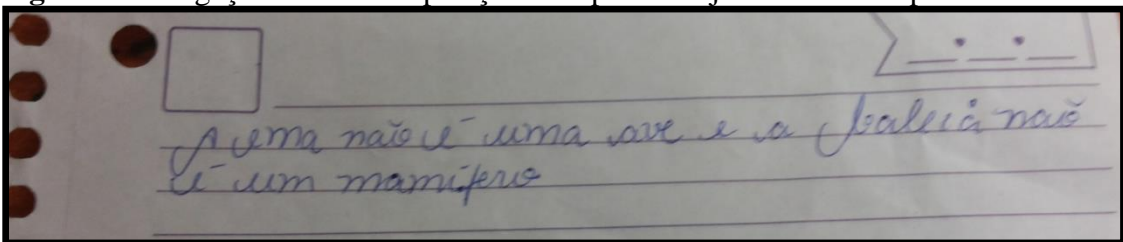 A ema não é uma ave e a baleia não
é um mamífero